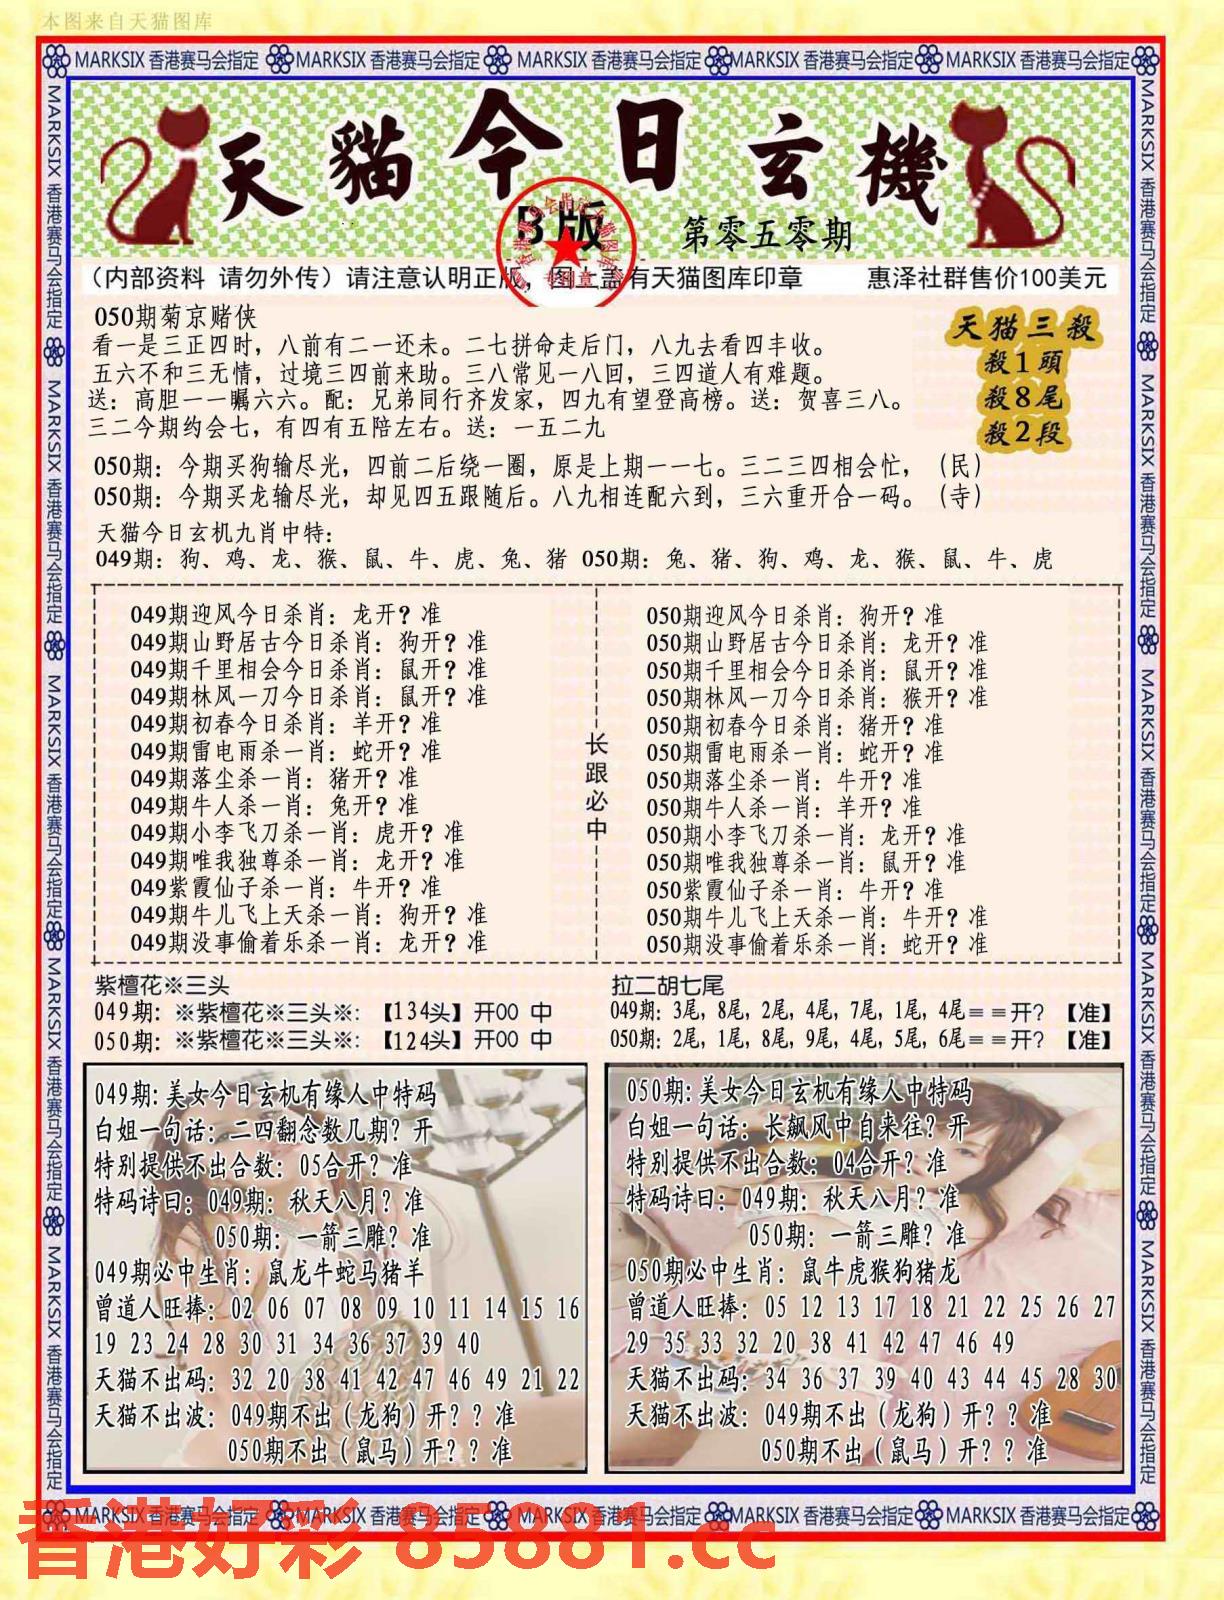 本图来自天猫图库
MARKSIX 香港赛马会指定 MARKSIX 香港赛马会指定 MARKSIX 香港赛马会指定 MARKSIX 香港赛马会指定 MARKSIX 香港赛马会指定
MARKSIX 香港赛马会指定 MARKSIX 香港赛马会指定 MARKSIX 香港赛马会指定 MARKSIX 香港赛马会指定 MARKSIX 香港赛马会指定
MARKSIX 香港赛马会指定 MARKSIX 香港赛马会指定 MARKSIX 香港赛马会指定 MARKSIX 香港赛马会指定 MARKSIX 香港赛马会指定
天貓今日玄機
B版
第零五零期
（内部资料 请勿外传）请注意认明正版，图上盖有天猫图库印章
惠泽社群售价100美元
050期菊京赌侠
看一是三正四时，八前有二一还未。二七拼命走后门，八九去看四丰收。
五六不和三无情，过境三四前来助。三八常见一八回，三四道人有难题。
送：高胆一一瞩六六。配：兄弟同行齐发家，四九有望登高榜。送：贺喜三八。
三二今期约会七，有四有五陪左右。送：一五二九
天猫三殺
殺1頭
殺8尾
殺2段
050期：今期买狗输尽光，四前二后绕一圈，原是上期一一七。三二三四相会忙，（民）
050期：今期买龙输尽光，却见四五跟随后。八九相连配六到，三六重开合一码。（寺）
天猫今日玄机九肖中特：
049期：狗、鸡、龙、猴、鼠、牛、虎、兔、猪 050期：兔、猪、狗、鸡、龙、猴、鼠、牛、虎
049期迎风今日杀肖：龙开？准
049期山野居古今日杀肖：狗开？准
049期千里相会今日杀肖：鼠开？准
049期林风一刀今日杀肖：鼠开？准
049期初春今日杀肖：羊开？准
049期雷电雨杀一肖：蛇开？准
049期落尘杀一肖：猪开？准
049期牛人杀一肖：兔开？准
049期小李飞刀杀一肖：虎开？准
049期唯我独尊杀一肖：龙开？准
049紫霞仙子杀一肖：牛开？准
049期牛儿飞上天杀一肖：狗开？准
049期没事偷着乐杀一肖：龙开？准
长跟必中
050期迎风今日杀肖：狗开？准
050期山野居古今日杀肖：龙开？准
050期千里相会今日杀肖：鼠开？准
050期林风一刀今日杀肖：猴开？准
050期初春今日杀肖：猪开？准
050期雷电雨杀一肖：蛇开？准
050期落尘杀一肖：牛开？准
050期牛人杀一肖：羊开？准
050期小李飞刀杀一肖：龙开？准
050期唯我独尊杀一肖：鼠开？准
050紫霞仙子杀一肖：牛开？准
050期牛儿飞上天杀一肖：牛开？准
050期没事偷着乐杀一肖：蛇开？准
紫檀花※三头
049期：※紫檀花※三头※：【134头】开00 中
050期：※紫檀花※三头※：【124头】开00 中
拉二胡七尾
049期：3尾，8尾，2尾，4尾，7尾，1尾，4尾＝＝开？【准】
050期：2尾，1尾，8尾，9尾，4尾，5尾，6尾＝＝开？【准】
049期：美女今日玄机有缘人中特码
白姐一句话：二四翻念数几期？开
特别提供不出合数：05合开？准
特码诗曰：049期：秋天八月？准
050期：一箭三雕？准
049期必中生肖：鼠龙牛蛇马猪羊
曾道人旺捧：02 06 07 08 09 10 11 14 15 16
19 23 24 28 30 31 34 36 37 39 40
天猫不出码：32 20 38 41 42 47 46 49 21 22
天猫不出波：049期不出（龙狗）开？？准
050期不出（鼠马）开？？准
050期：美女今日玄机有缘人中特码
白姐一句话：长飙风中自来往？开
特别提供不出合数：04合开？准
特码诗曰：049期：秋天八月？准
050期：一箭三雕？准
050期必中生肖：鼠牛虎猴狗猪龙
曾道人旺捧：05 12 13 17 18 21 22 25 26 27
29 35 33 32 20 38 41 42 47 46 49
天猫不出码：34 36 37 39 40 43 44 45 28 30
天猫不出波：049期不出（龙狗）开？？准
050期不出（鼠马）开？？准
MARKSIX 香港赛马会指定 MARKSIX 香港赛马会指定 MARKSIX 香港赛马会指定 MARKSIX 香港赛马会指定 MARKSIX 香港赛马会指定
香港好彩 85881.cc